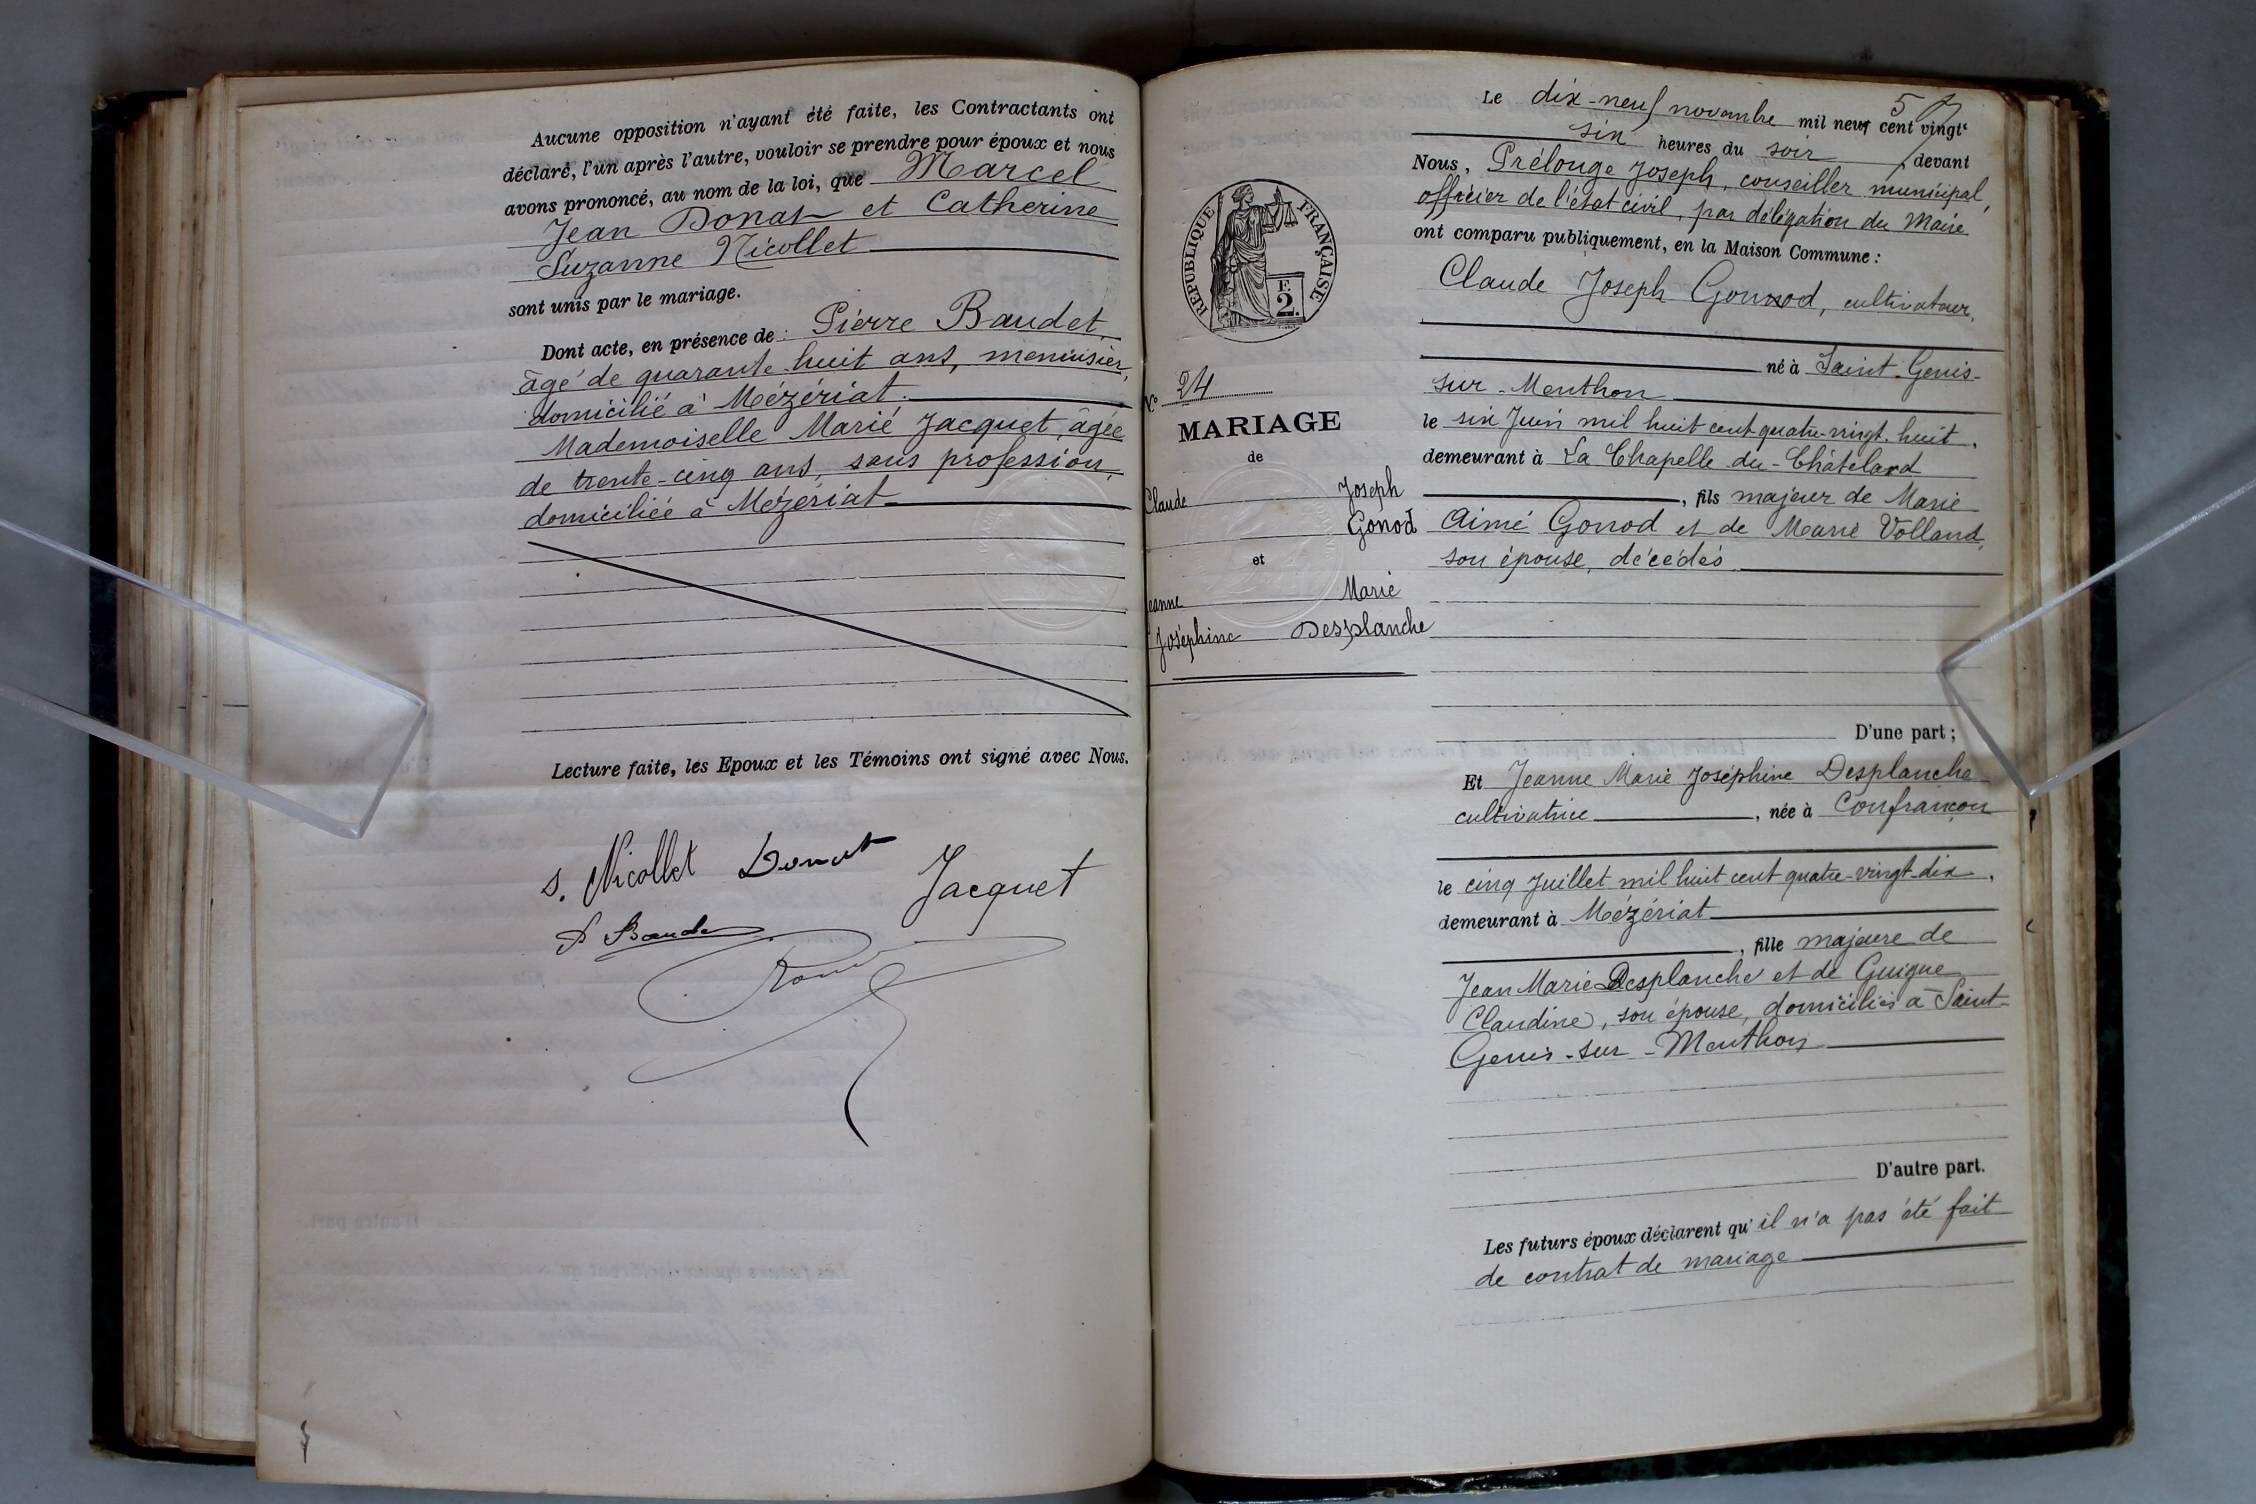 Aucune opposition n'ayant été faite, les Contractants ont
déclaré, l'un après l'autre, vouloir se prendre pour époux et nous
avons prononcé, au nom de la loi, que Marcel
Jean Donat et Catherine
Suzanne Nicollet
sont unis par le mariage.
Dont acte, en présence de : Pierre Baudet,
âgé de quarante-huit ans, menuisier,
domicilié à Mézériat.
Mademoiselle Marie Jacquet, âgée
de trente-cinq ans, sans profession,
domiciliée à Mézériat
Lecture faite, les Epoux et les Témoins ont signé avec Nous.
S. Nicollet Donat
Jacquet
P Baudet
Le dix-neuf novembre mil neuf cent vingt
six heures du soir, devant
Nous, Prélonge Joseph, conseiller municipal,
officier de l'état civil, par délégation du Maire
ont comparu publiquement, en la Maison Commune :
Claude Joseph Gonod, cultivateur,
né à Saint-Genis-
sur-Menthon
le six Juin mil huit cent quatre-vingt-huit,
demeurant à La Chapelle-du-Châtelard
, fils majeur de Marie
Aimé Gonod et de Marie Volland,
son épouse, décédés
D'une part ;
RÉPUBLIQUE FRANÇAISE
F.
2.
N° 24
MARIAGE
de
Claude Joseph
Gonod
et
Jeanne Marie
Joséphine Desplanche
Et Jeanne Marie Joséphine Desplanche
cultivatrice, née à Confrançon
le cinq Juillet mil huit cent quatre-vingt-dix,
demeurant à Mézériat
, fille majeure de
Jean Marie Desplanche et de Guigue
Claudine, son épouse, domiciliés à Saint-
Genis-sur-Menthon
D'autre part.
Les futurs époux déclarent qu'il n'a pas été fait
de contrat de mariage